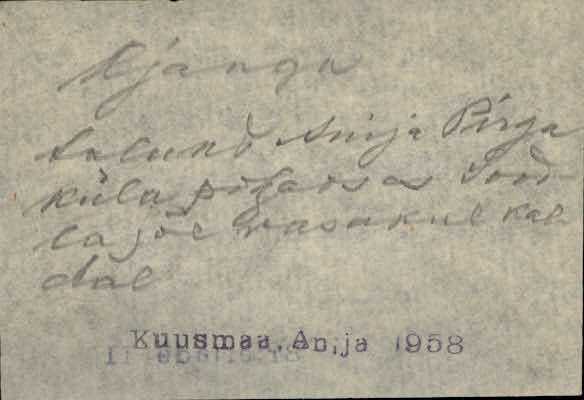 Kjanga
talund Anija Pirga
küla põhaosas Sood-
la jõe vasakul kal
dal
Kuusmaa, An,ja 1958